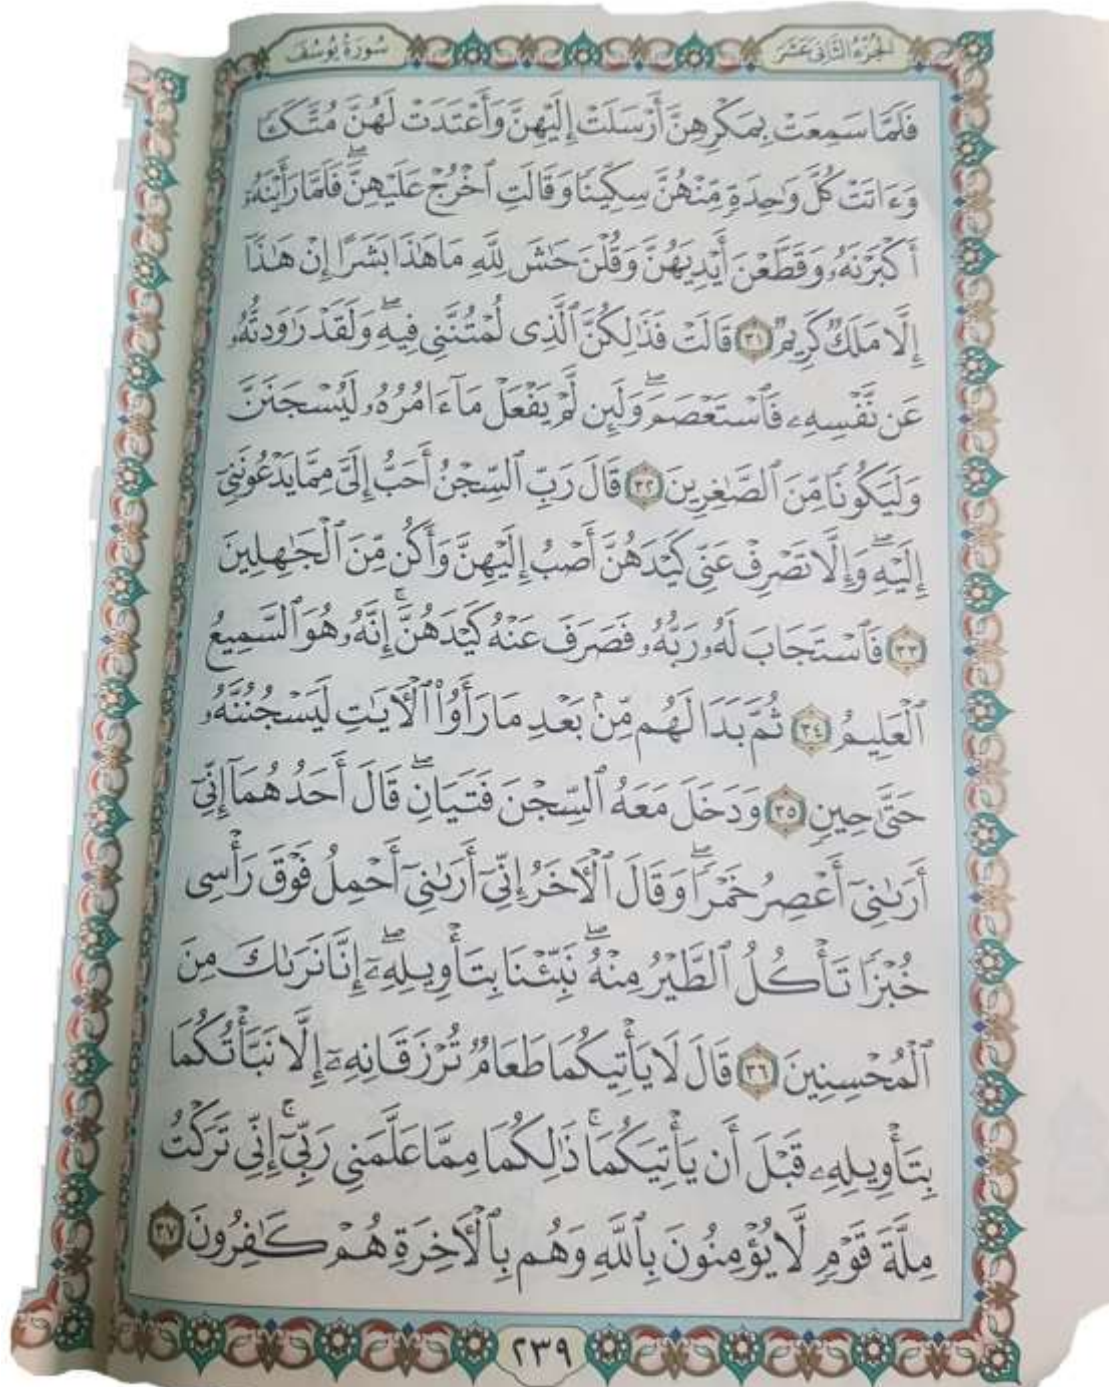 الجُزْءُ الثَّانِي عَشَرَ
سُورَةُ يُوسُفَ
فَلَمَّا سَمِعَتْ بِمَكْرِهِنَّ أَرْسَلَتْ إِلَيْهِنَّ وَأَعْتَدَتْ لَهُنَّ مُتَّكَـًٔا
وَءَاتَتْ كُلَّ وَٰحِدَةٍ مِّنْهُنَّ سِكِّينًا وَقَالَتِ ٱخْرُجْ عَلَيْهِنَّۖ فَلَمَّا رَأَيْنَهُۥٓ
أَكْبَرْنَهُۥ وَقَطَّعْنَ أَيْدِيَهُنَّ وَقُلْنَ حَٰشَ لِلَّهِ مَا هَٰذَا بَشَرًا إِنْ هَٰذَآ
إِلَّا مَلَكٌ كَرِيمٌ ٣١ قَالَتْ فَذَٰلِكُنَّ ٱلَّذِى لُمْتُنَّنِى فِيهِۖ وَلَقَدْ رَٰوَدتُّهُۥ
عَن نَّفْسِهِۦ فَٱسْتَعْصَمَۖ وَلَئِن لَّمْ يَفْعَلْ مَآ ءَامُرُهُۥ لَيُسْجَنَنَّ
وَلَيَكُونًا مِّنَ ٱلصَّٰغِرِينَ ٣٢ قَالَ رَبِّ ٱلسِّجْنُ أَحَبُّ إِلَىَّ مِمَّا يَدْعُونَنِىٓ
إِلَيْهِۖ وَإِلَّا تَصْرِفْ عَنِّى كَيْدَهُنَّ أَصْبُ إِلَيْهِنَّ وَأَكُن مِّنَ ٱلْجَٰهِلِينَ
٣٣ فَٱسْتَجَابَ لَهُۥ رَبُّهُۥ فَصَرَفَ عَنْهُ كَيْدَهُنَّۚ إِنَّهُۥ هُوَ ٱلسَّمِيعُ
ٱلْعَلِيمُ ٣٤ ثُمَّ بَدَا لَهُم مِّنۢ بَعْدِ مَا رَأَوُا۟ ٱلْءَايَٰتِ لَيَسْجُنُنَّهُۥ
حَتَّىٰ حِينٍ ٣٥ وَدَخَلَ مَعَهُ ٱلسِّجْنَ فَتَيَانِۖ قَالَ أَحَدُهُمَآ إِنِّىٓ
أَرَىٰنِىٓ أَعْصِرُ خَمْرًاۖ وَقَالَ ٱلْءَاخَرُ إِنِّىٓ أَرَىٰنِىٓ أَحْمِلُ فَوْقَ رَأْسِى
خُبْزًا تَأْكُلُ ٱلطَّيْرُ مِنْهُۖ نَبِّئْنَا بِتَأْوِيلِهِۦٓۖ إِنَّا نَرَىٰكَ مِنَ
ٱلْمُحْسِنِينَ ٣٦ قَالَ لَا يَأْتِيكُمَا طَعَامٌ تُرْزَقَانِهِۦٓ إِلَّا نَبَّأْتُكُمَا
بِتَأْوِيلِهِۦ قَبْلَ أَن يَأْتِيَكُمَاۚ ذَٰلِكُمَا مِمَّا عَلَّمَنِى رَبِّىٓۚ إِنِّى تَرَكْتُ
مِلَّةَ قَوْمٍ لَّا يُؤْمِنُونَ بِٱللَّهِ وَهُم بِٱلْءَاخِرَةِ هُمْ كَٰفِرُونَ ٣٧
٢٣٩